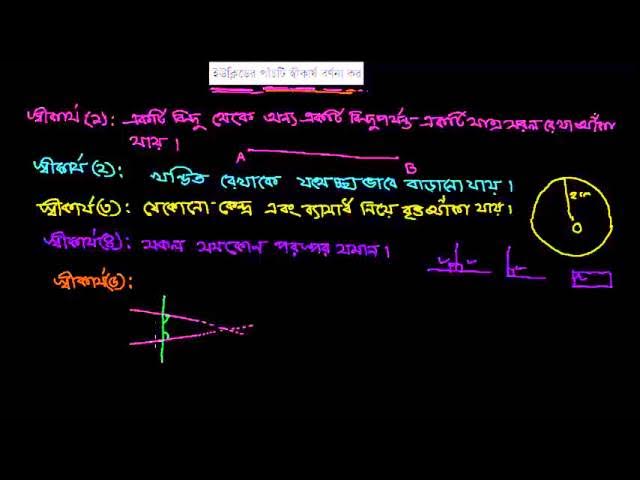 ইউক্লিডের পাঁচটি স্বীকার্য বর্ণনা কর
স্বীকার্য (১): একটি বিন্দু থেকে অন্য একটি বিন্দুপর্যন্ত একটি মাত্র সরল রেখা আঁকা
যায় ।
A B
স্বীকার্য (২): খন্ডিত রেখাকে যথেচ্ছভাবে বাড়ানো যায় ।
স্বীকার্য (৩): যেকোনো কেন্দ্র এবং ব্যাসার্ধ নিয়ে বৃত্ত আঁকা যায় ।
2 cm
O
স্বীকার্য (৪): সকল সমকোন পরস্পর সমান ।
স্বীকার্য (৫):